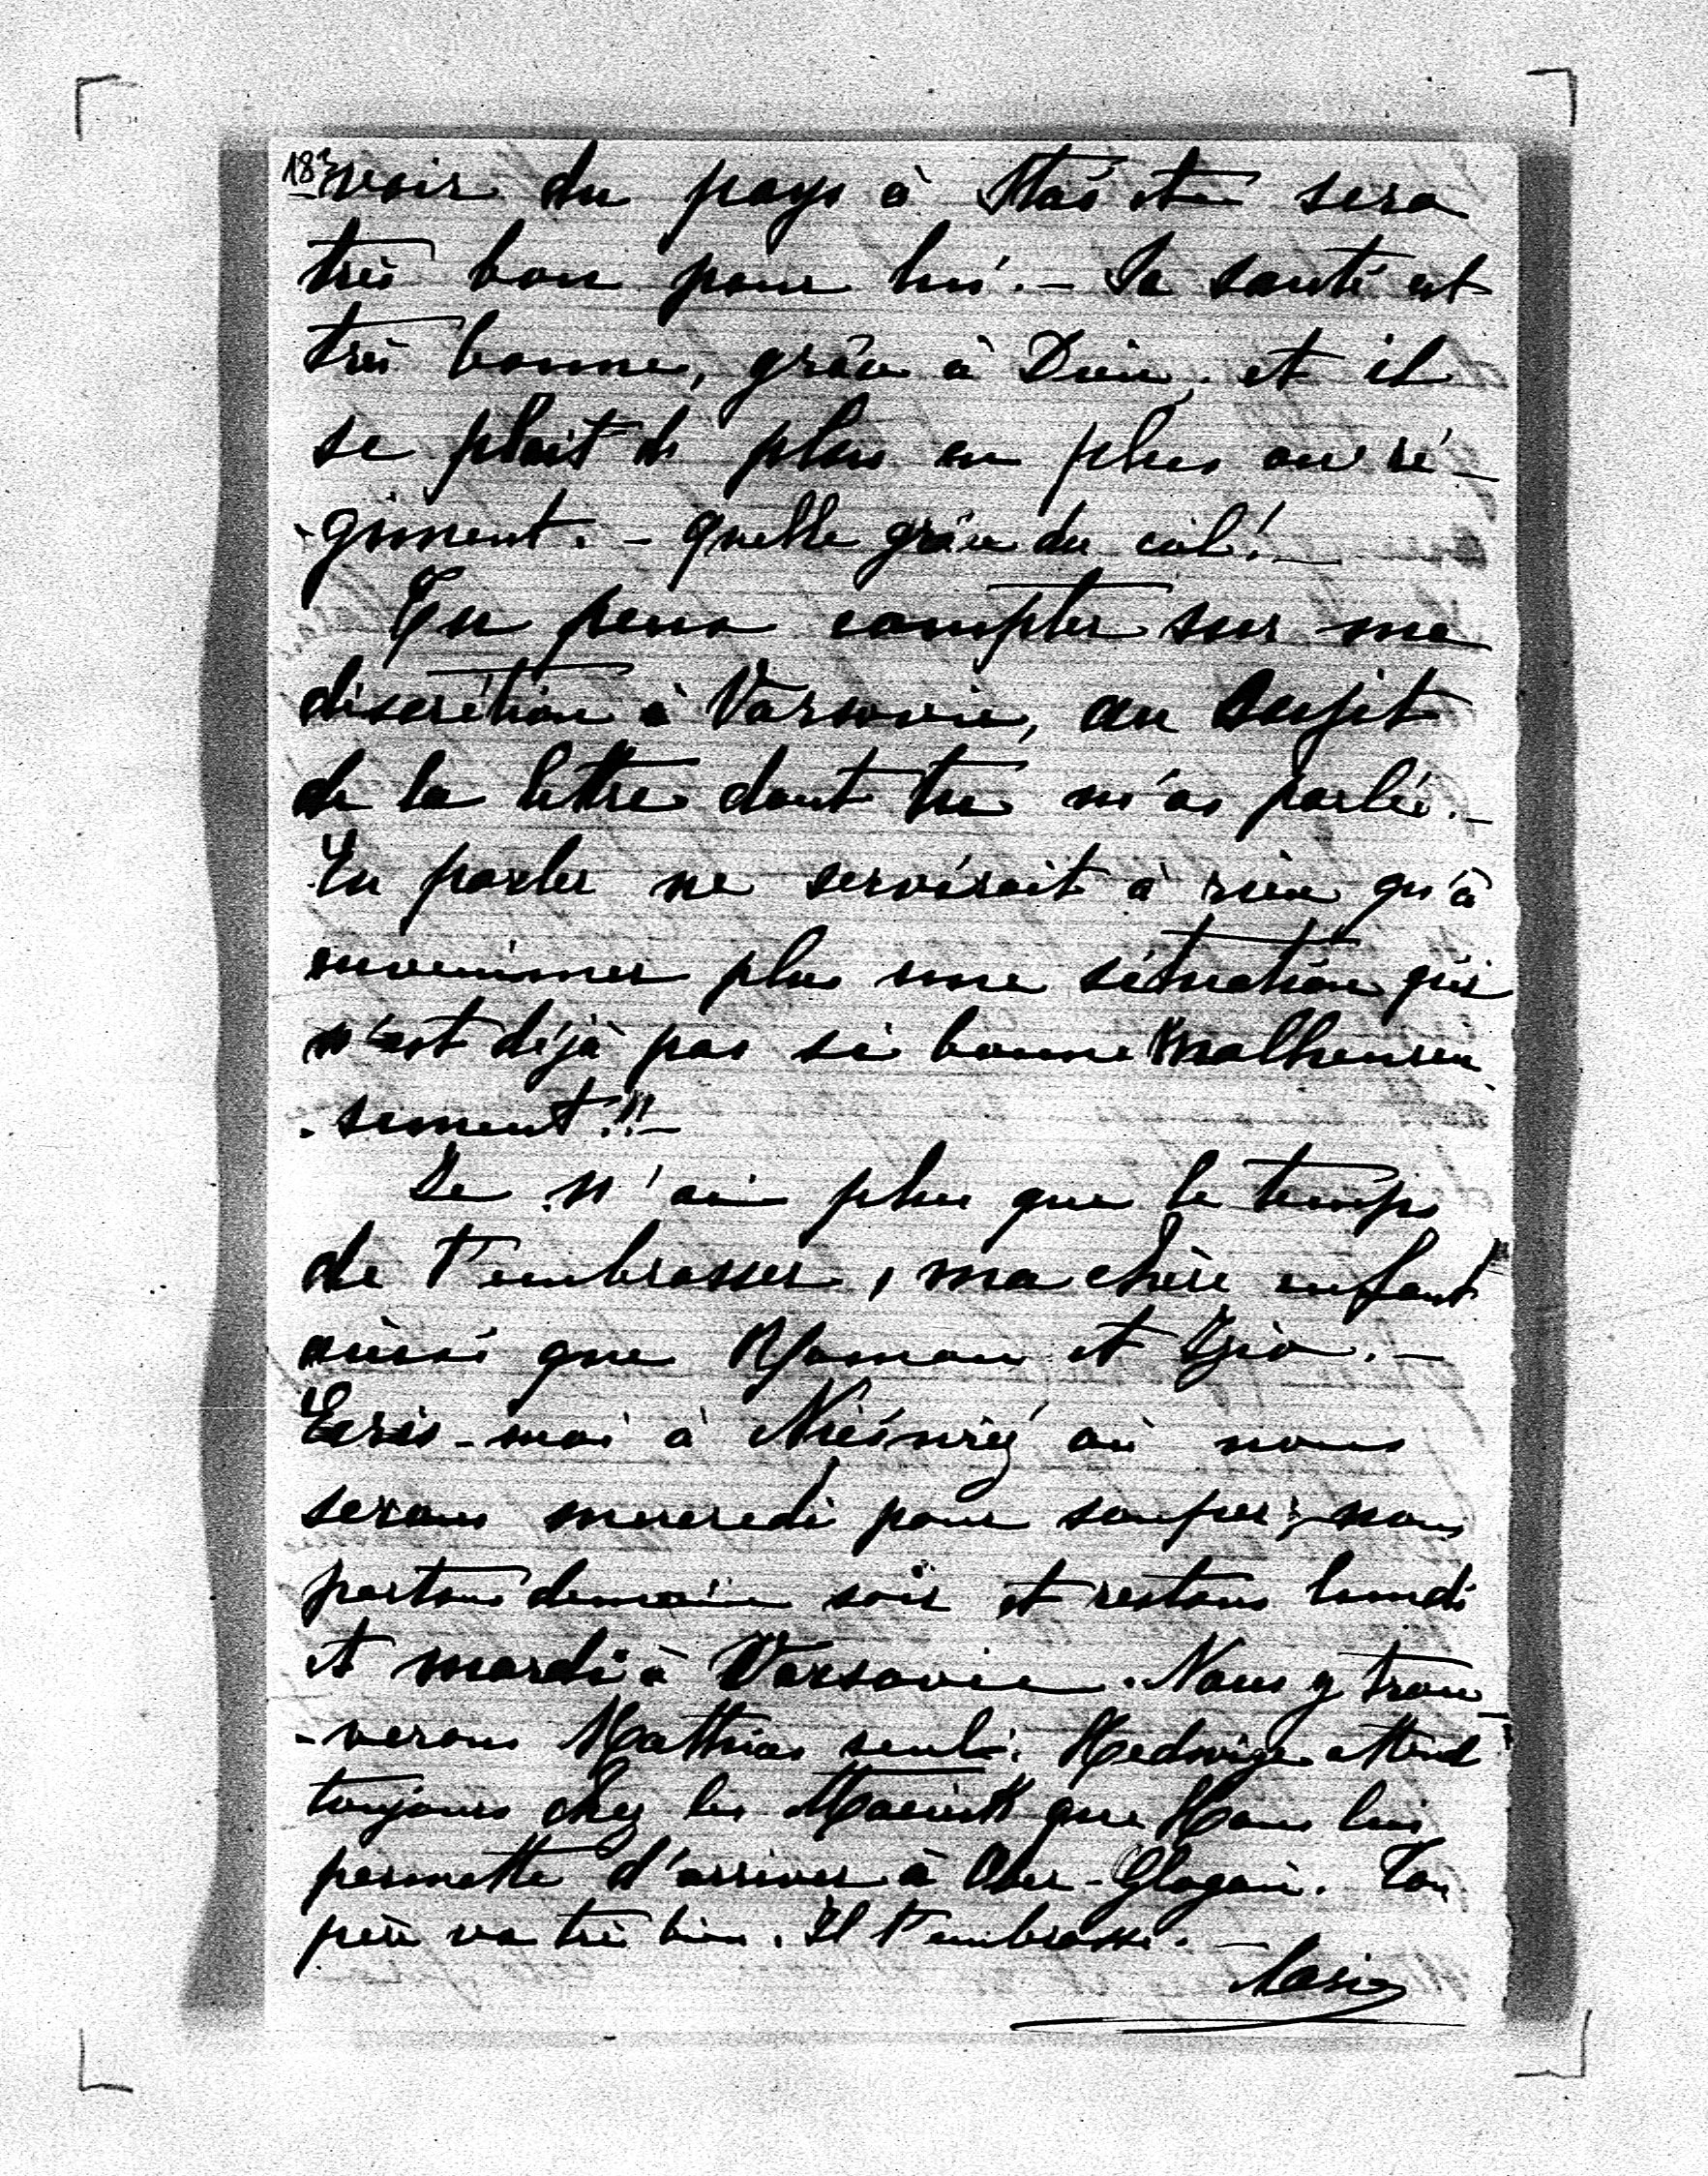 183
voir du pays à Staś etc sera
très bon pour lui. – Sa santé est
très bonne, grâce à Dieu, et il
se plait de plus en plus au ré-
-giment. – quelle grâce du ciel! –
Tu peux compter sur ma
discrétion à Varsovie, au sujet
de la lettre dont tu m'as parlé. –
En parler ne servirait à rien qu'à
envenimer plus une situation qui
n'est déjà pas si bonne malheureu-
-sement!! –
Je n'ai plus que le temps
de t'embrasser, ma chère enfant
ainsi que Roman et Izio. –
Ecris-moi à Nieśwież où nous
serons mercredi pour souper; nous
partons demain soir et restons lundi
et mardi à Varsovie. Nous y trou-
-verons Mathias seul. Hedwige attend
toujours chez les que Hans lui
permette d'arriver à Ober-Glogau. Ton
père va très bien. Il t'embrasse. –
Marie